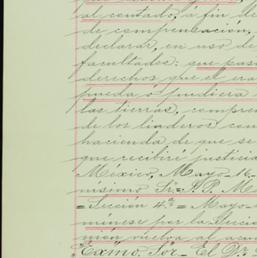 al contado, a fin de
de compensacion,
declarar, en uso de
facultades: que pasa
derechos que el era
pueda o pudiera
las tierras, compren
de los linderos con
hacienda de que se
que recibiré justicia
México, Mayo 16-
nisimo Sr. = P. P. M
= Seccion 4ª = Mayo -
minese por la Secció
nión vuelva al acue
"Exmo. Sor - El D.